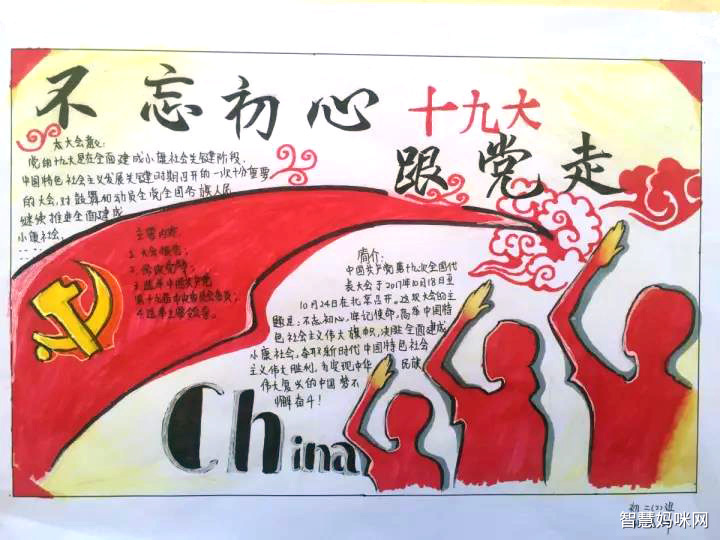 不忘初心
十九大
跟党走
大会意义:
党的十九大是在全面建成小康社会关键阶段、
中国特色社会主义发展关键时期召开的一次十分重要
的大会,对鼓舞和动员全党全国各族人民
继续推进全面建成
小康社会、
......
主要内容
1.大会报告;
2.修改党章;
3.选举中国共产党
第十九届中央委员会委员;
4.选举主要领导。
简介:
中国共产党第十九次全国代
表大会于2017年10月18日至
10月24日在北京召开。这次大会的主
题是:不忘初心,牢记使命,高举中国特
色社会主义伟大旗帜,决胜全面建成
小康社会,夺取新时代中国特色社会
主义伟大胜利,为实现中华民族
伟大复兴的中国梦不
懈奋斗!
China
初二(2)班
智慧妈咪网